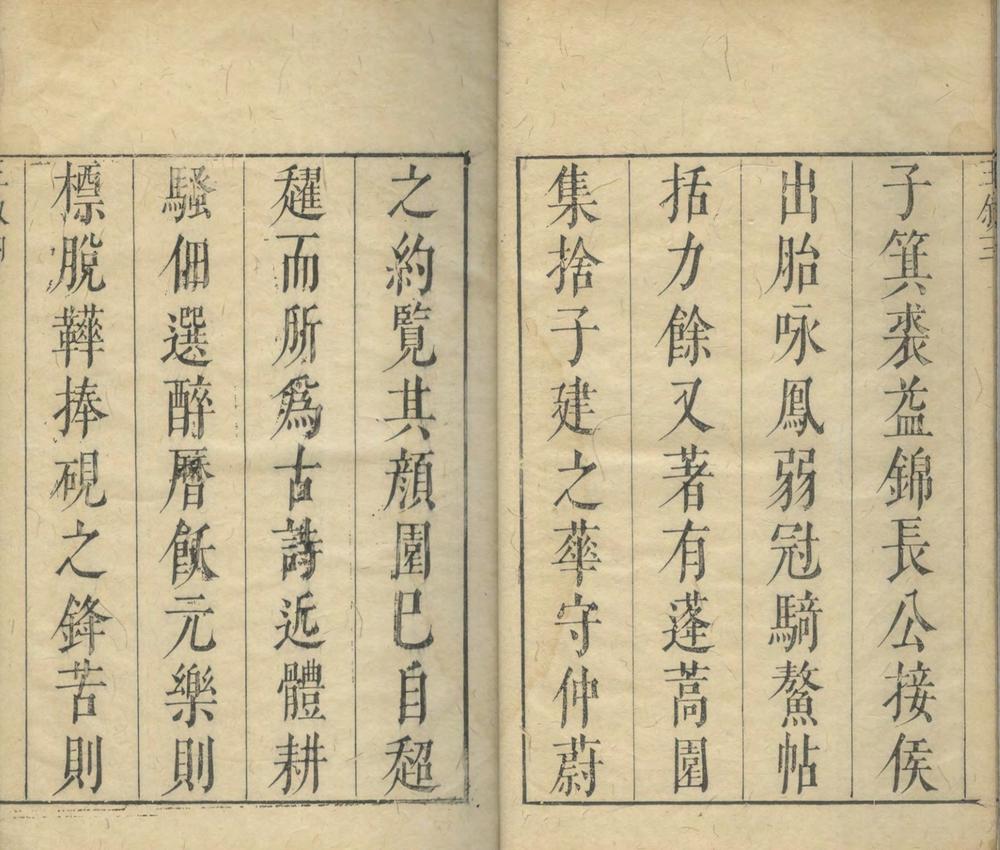 子箕裘益錦長公接侯
出胎咏鳳弱冠騎鰲帖
括力餘又著有蓬蒿園
集捨子建之華守仲蔚
之約覧其顔園已自超
而所爲古詩近體耕
騷佃選醉曆飫元樂則
標脫鞾捧硯之鋒苦則